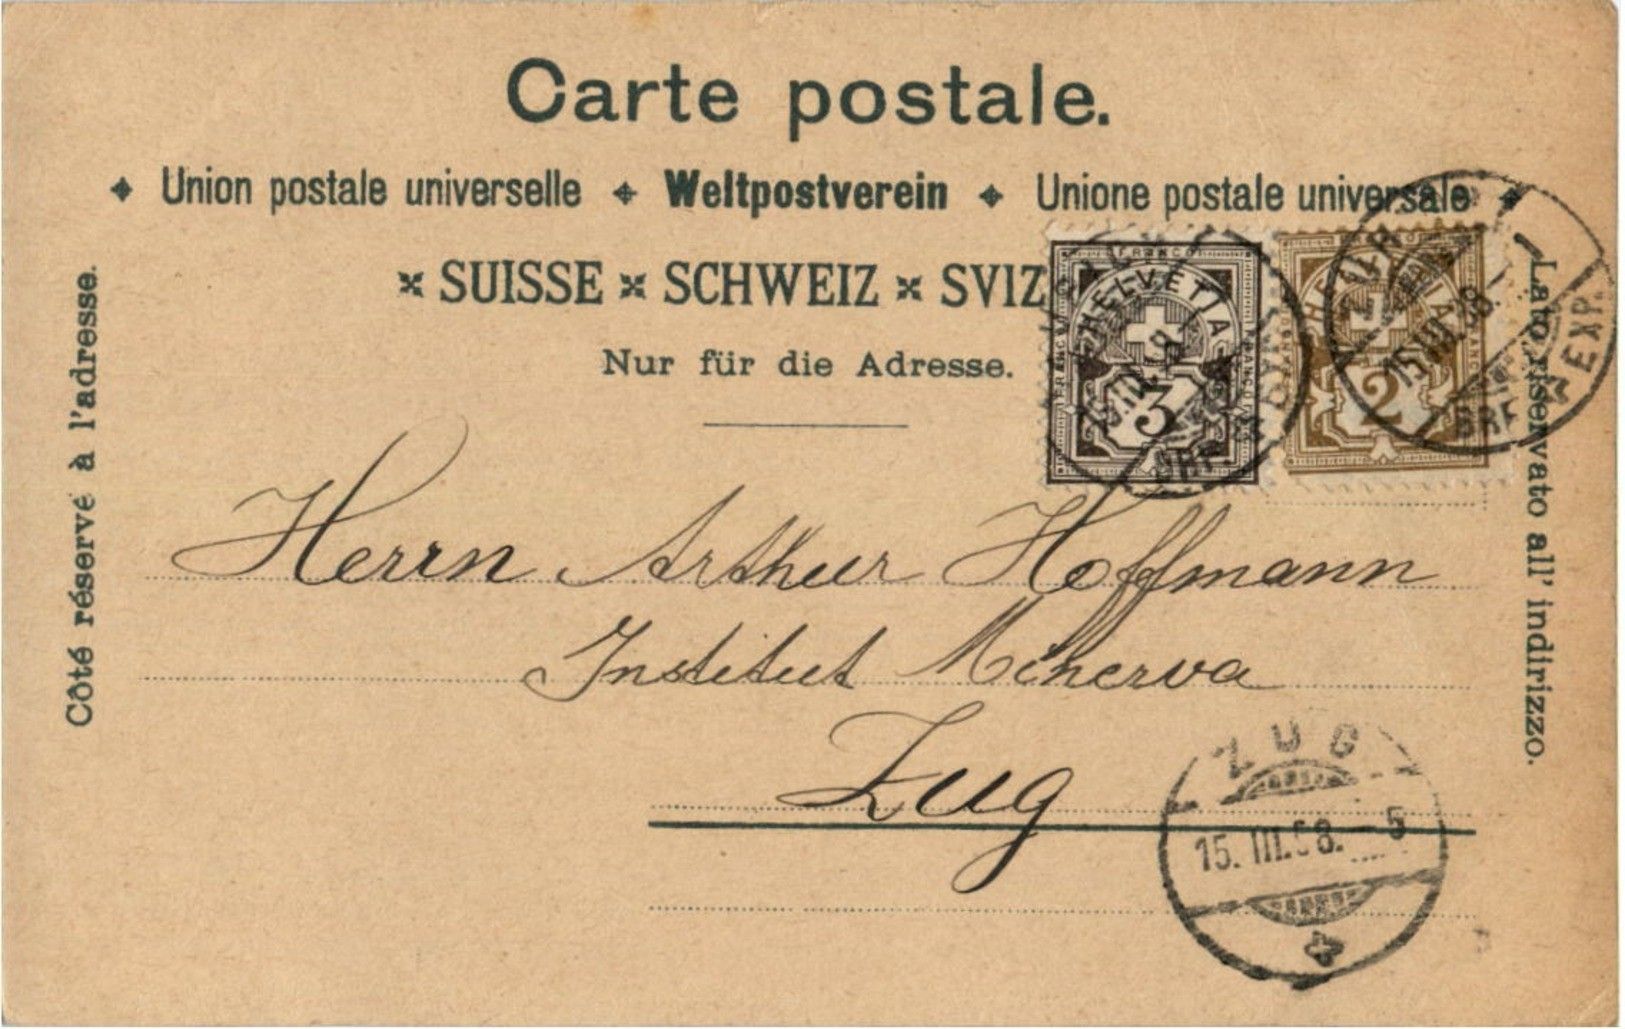 Carte postale.
Union postale universelle Weltpostverein Unione postale universale
SUISSE SCHWEIZ SVIZ
Nur für die Adresse.
Côté réservé à l'adresse.
Lato riservato all' indirizzo.
FRANCO
HELVETIA
3
2
15.III.98.
BRF. EXP.
Herrn Arthur Hoffmann
Institut Minerva
Zug
ZUG
15. III. 8. - 5